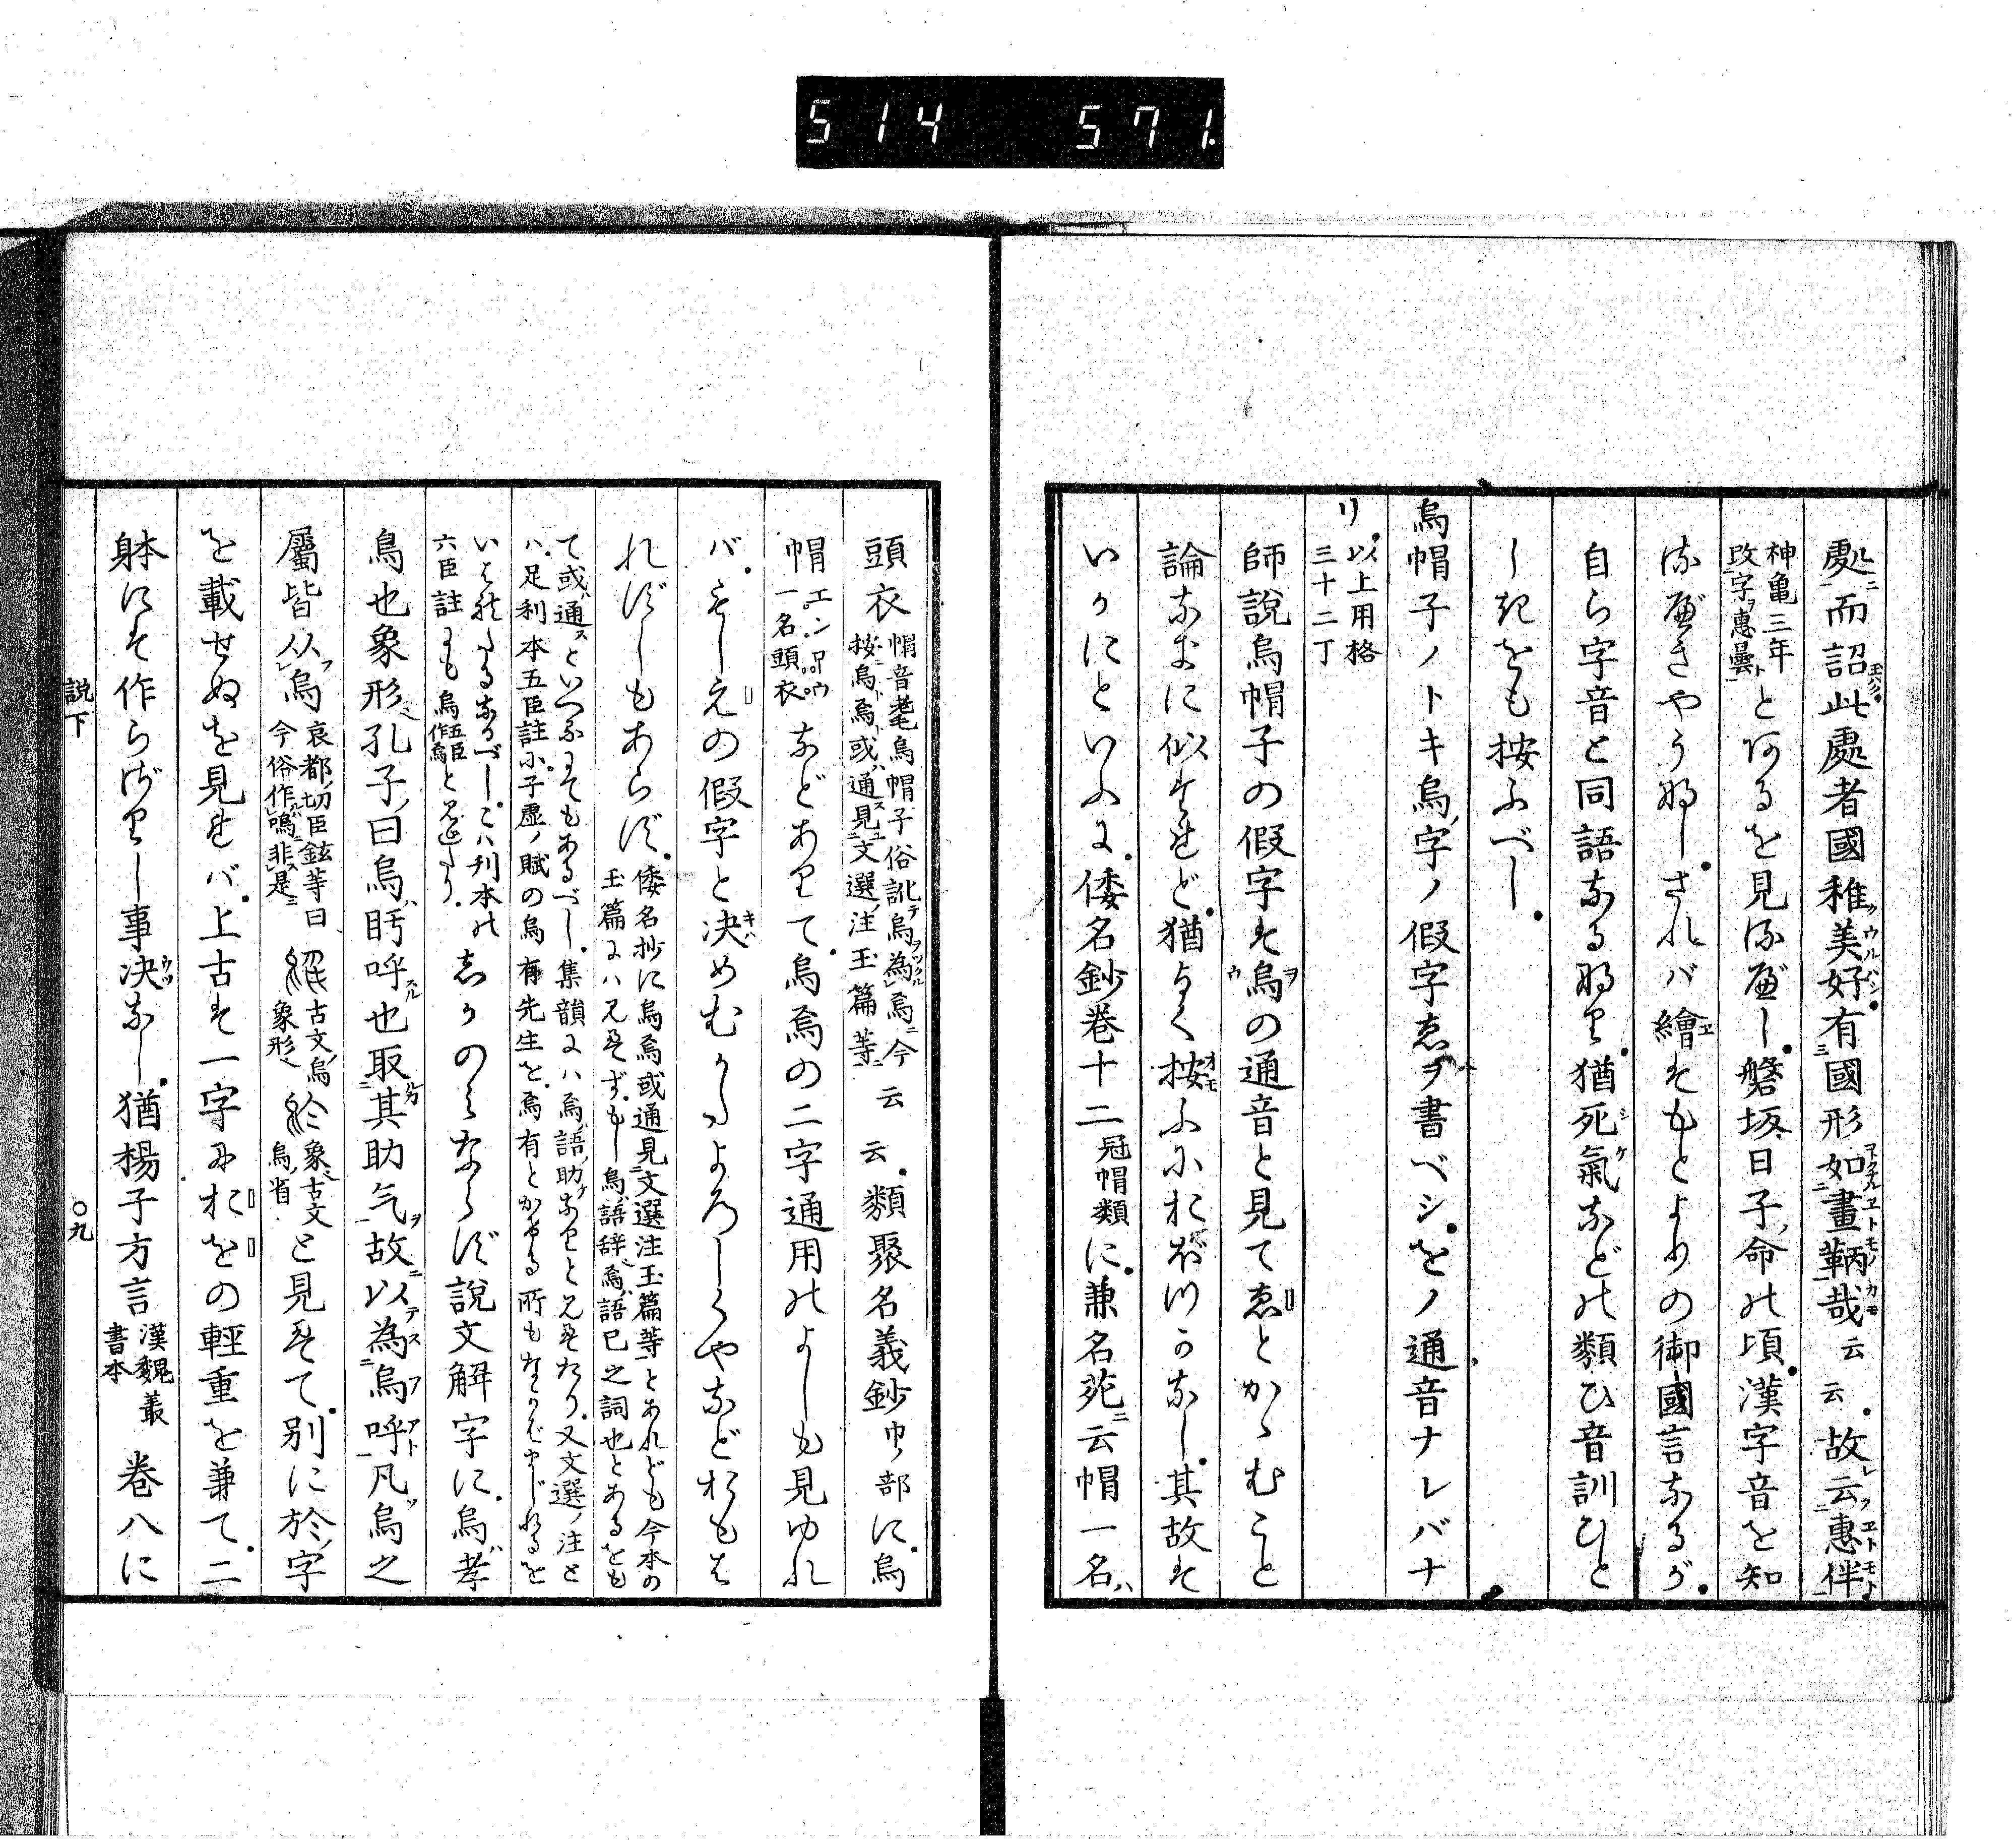 514 571.
處而詔此處者國稚美好有國形如畫鞆哉云云故云惠伴
神亀三年改字惠曇とあるを見るべし磐坂日子命の頃漢字音を知
るべきやうなしされバ繪はもとよりの御國言なるが
自ら字音と同語なるなり猶死氣などの類ひ音訓ひと
しきをも按ふべし
烏帽子ノトキ烏字ノ假字ゑヲ書ベシをノ通音ナレバナ
リ以上用格三十二丁
師説烏帽子の假字は烏の通音と見てゑとかゝむこと
論なきに似たれど猶よく按ふにおぼつかなし其故は
いかにといふに倭名鈔巻十二冠帽類に兼名苑云帽一名
頭衣帽音耄烏帽子俗訛烏為焉今按烏焉或通見文選注玉篇等云云類聚名義鈔巾部に烏
帽エンホウ一名頭衣などありて烏焉の二字通用のよしも見ゆれ
バえの假字と決めむかたよろしくやなどおもは
れずしもあらず倭名抄に烏焉或通見文選注玉篇等とあれども今本の玉篇にハ見えずもし烏語辞焉語已之詞也とあるをも
て或通といへるにてもあるべし集韻にハ烏語助なりと見えたり又文選ノ注とハ足利本五臣註小子虚ノ賦の烏有先生を焉有とかける所もなかばまじれるを
いへるなるべしこハ刊本の六臣註にも烏五臣作焉と見えたり しかのみならず説文解字に烏孝
鳥也象形孔子曰烏盱呼也取其助气故以為烏呼凡烏之
屬皆从烏哀都切臣鉉等曰今俗作嗚非是 古文烏象形 象古文烏省と見えて別に於字
を載せぬを見れバ上古は一字におをの輕重を兼て二
躰には作らざりし事决なし猶楊子方言漢魏叢書本巻八に
説下 〇九